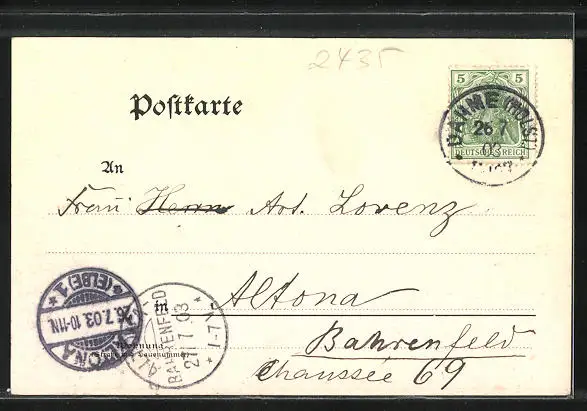 2435
5 5
DEUTSCHES REICH
DAHME (HOLST)
26 7
03
Postkarte
An
Frau Herrn Art. Lorenz
in
Altona
Bahrenfeld
Chaussée 69
Wohnung
(Straße und Hausnummer)
(ELBE) 1
26.7.03. 10-11N.
BAHRENFELD
27 7 03
* 1-7 V *